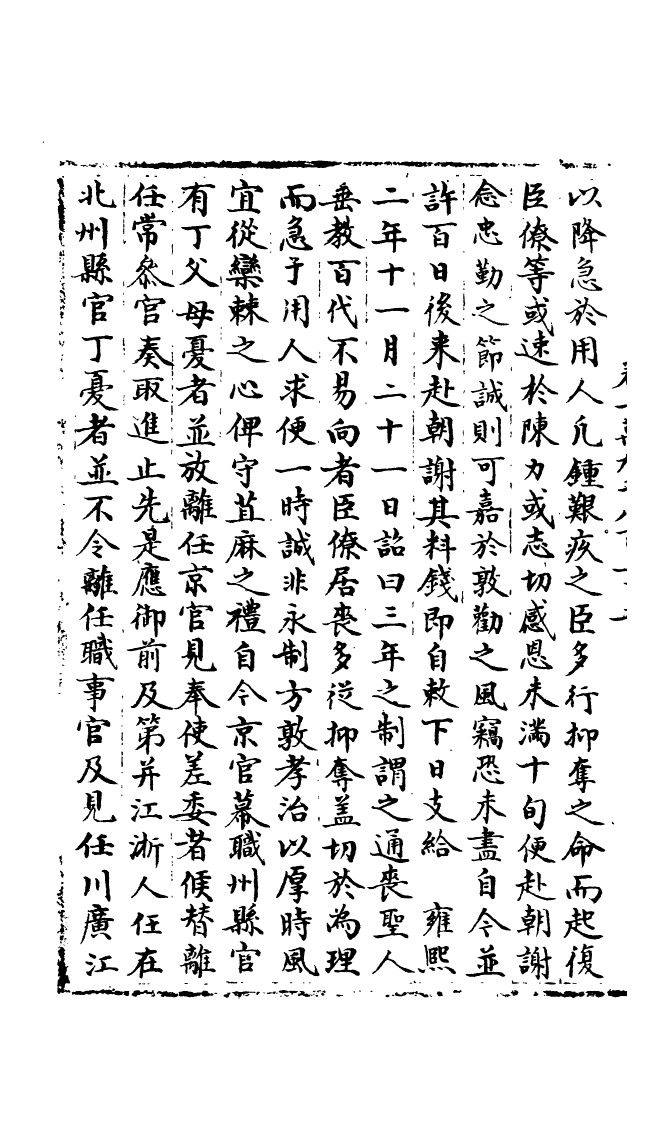 以降急於用人凢鍾艱疚之臣多行抑奪之命而起復
臣僚等或速於陳力或志切感恩未滿十旬便赴朝謝
念忠勤之節誠則可嘉於敦勸之風竊恐未盡自今並
許百日後来赴朝謝其料錢即自敕下日支給　雍熙
二年十一月二十一日詔曰三年之制謂之通喪聖人
垂教百代不易向者臣僚居喪多從抑奪盖切於為理
而急于用人求便一時誠非永制方敦孝治以厚時風
宜從欒棘之心俾守苴麻之禮自今京官幕職州縣官
有丁父母憂者並放離任京官見奉使差委者候替離
任常叅官奏取進止先是應御前及第并江浙人任在
北州縣官丁憂者並不令離任職事官及見任川廣江